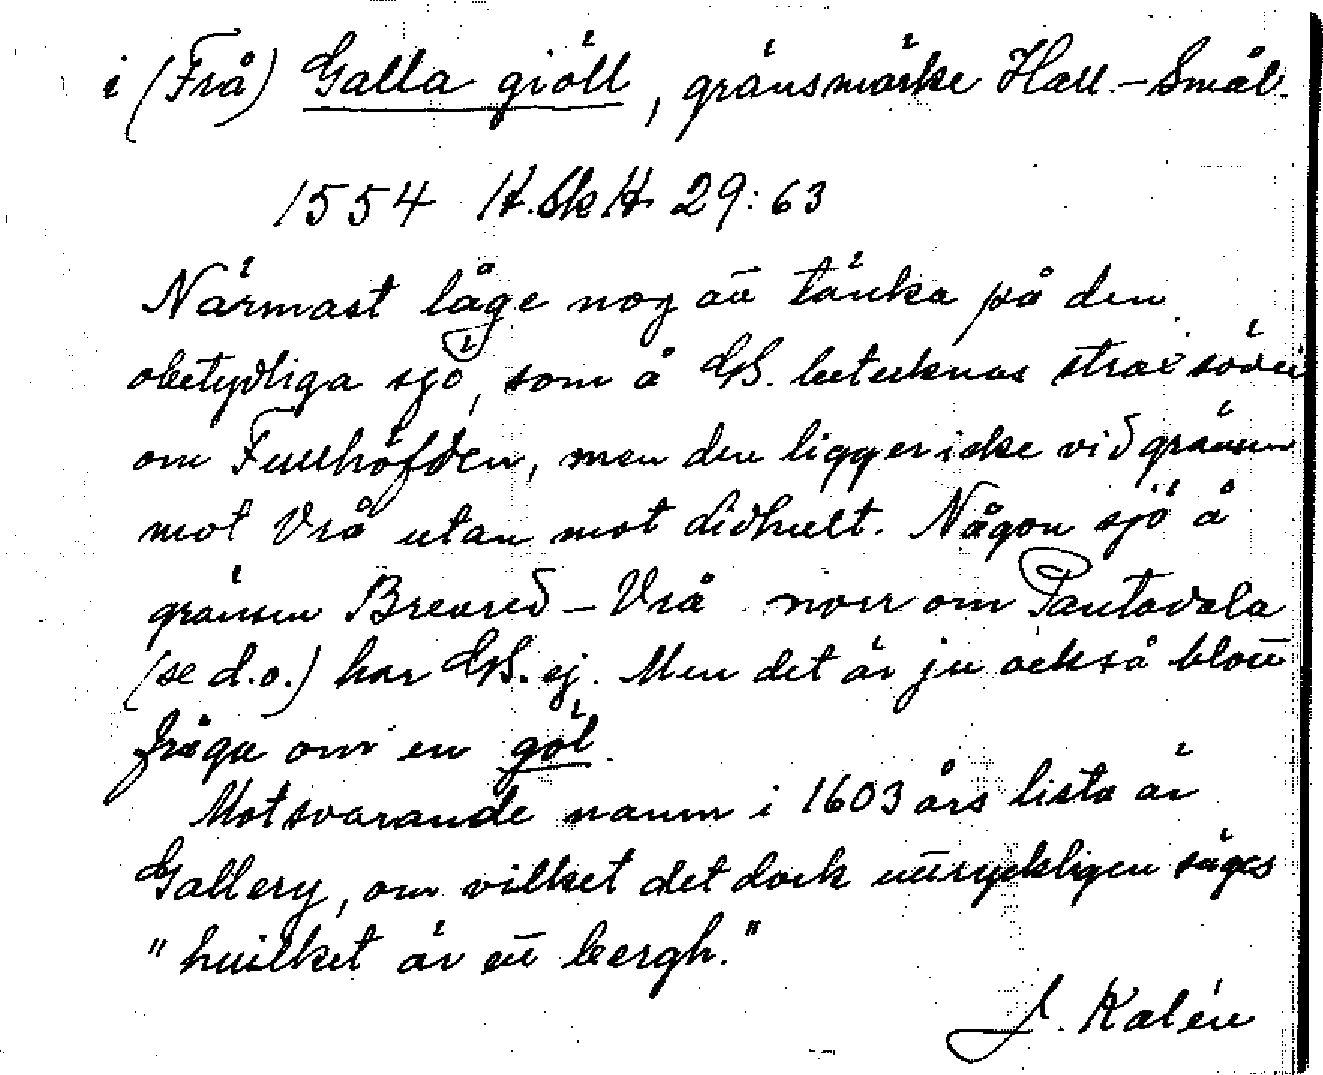 i (Frå) Galla giöll, gränsmärke Hall.-Smål.
1554 H.Sk H. 29:63
Närmast låge nog att tänka på den
obetydliga sjö, som å GS. betecknas strax söder
om Furuhöfden, men den ligger icke vid gränsen
mot Vrå utan mot Lidhult. Någon sjö å
gränsen Breared – Vrå norr om Tantavala
(se d.o.) har GS. ej. Men det är ju också blott
fråga om en göl.
Motsvarande namn i 1603 års lista är
Gallery, om vilket det dock uttryckligen säges
"huilket är ett bergh."
J. Kalén